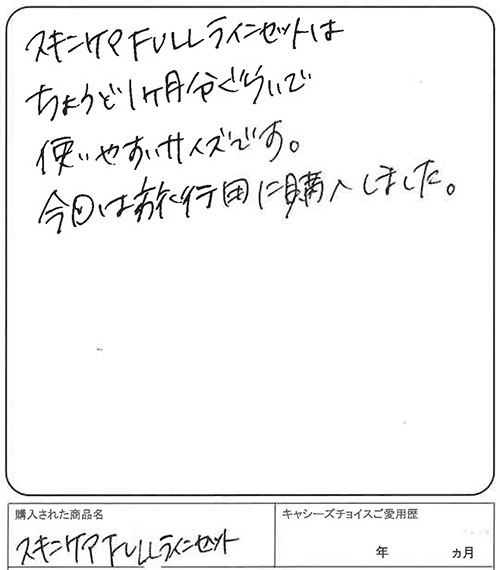 スキンケアFULLラインセットは
ちょうど1ヶ月分ぐらいで
使いやすいサイズです。
今回は旅行用に購入しました。
購入された商品名
キャシーズチョイスご愛用歴
スキンケアFULLラインセット
年 ヵ月